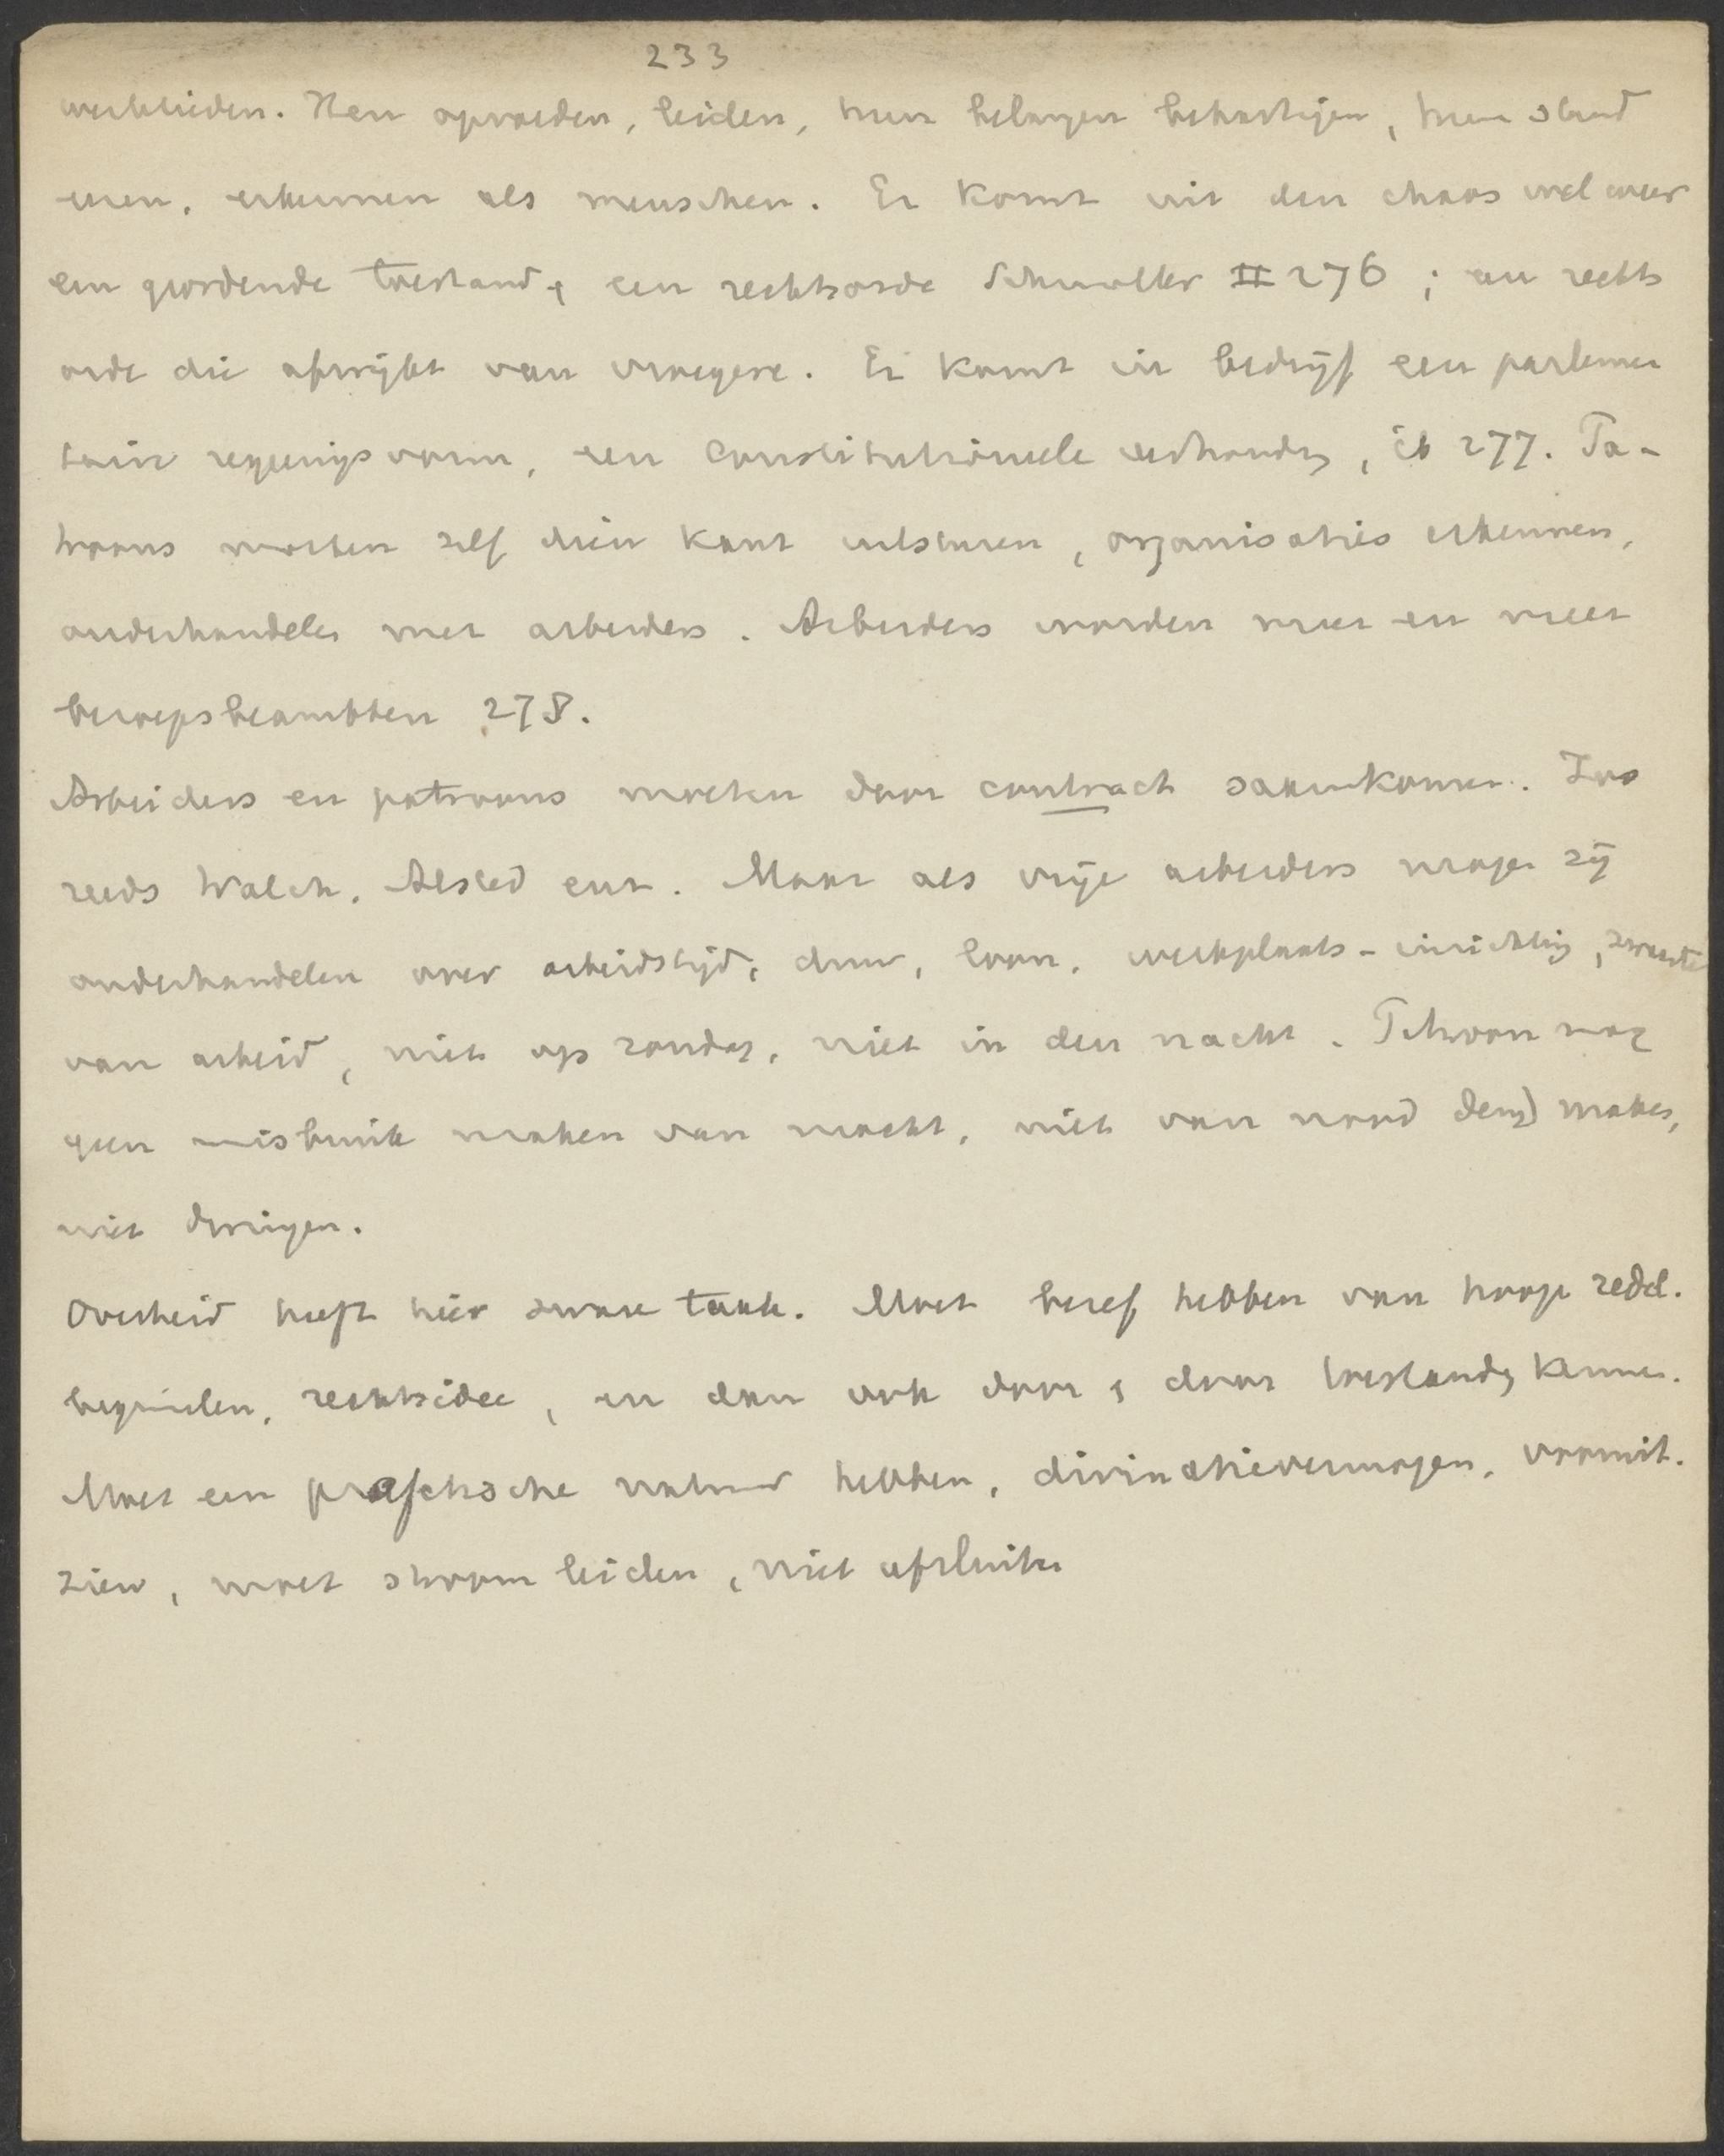 233
werklieden. Hen opvoeden, leiden, hun belangen behartigen, hun stand
eeren, erkennen als menschen. Er komt uit den chaos wel weer
een geordende toestand, een rechtsorde Schmoller II 276 ; een rechts
orde die afwijkt van vroegere. Er komt in bedrijf een parlemen
tair regeeringsvorm, een constitutioneele verhoudg, ib 277. Pa-
troons moeten zelf dien kant uitsturen, organisaties erkennen,
onderhandelen met arbeiders. Arbeiders worden meer en meer
beroepsbeambten 278.
Arbeiders en patroons moeten door contract samenkomen. Zoo
reeds Walch, Alsted enz. Maar als vrije arbeiders mogen zij
onderhandelen over arbeidstijd, duur, loon, werkplaats-inrichting, zwaarte
van arbeid, niet op zondag, niet in den nacht. Patroon mag
geen misbruik maken van macht, niet van nood deugd maken,
niet dwingen.
Overheid heeft hier zware taak. Moet besef hebben van hooge zedel.
beginselen, rechtsidee, en dan ook door & door toestandg kennen.
Moet een praktische natuur hebben, divinatievermogen, vooruit.
zien, moet stroom leiden, niet afsluiten